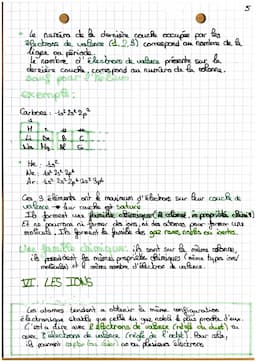 5
• Le numéro de la dernière couche occupée par les
électrons de valence (1, 2, 3) correspond au nombre de la
ligne ou période.
Le nombre d'électrons de valence présents sur la
dernière couche, correspond au numéro de la colonne.
Sauf pour l'Hélium
exemple:
Carbone: 1s² 2s² 2p²
H
Li Be B C
Na Mg Al Si
• He: 1s²
Ne: 1s² 2s² 2p⁶
Ar: 1s² 2s² 2p⁶ 3s² 3p⁶
Ces 3 éléments ont le maximum d'électrons sur leur couche de
valence → leur couche est saturée
Ils forment une famille chimique (même colonne, même propriété chimique)
Et ne pourront ni former des ions, ni des atomes pour former une
molécule. Ils forment la famille des gaz rares, nobles ou inertes.
Une famille chimique: ils sont sur la même colonne,
ils possèdent les mêmes propriétés chimiques (même type ion/
molécule) et le même nombre d'électrons de valence.
VI. LES IONS
Les atomes tendent à obtenir la même configuration
électronique stable que celle du gaz noble le plus proche d'eux.
C'est à dire avec 2 électrons de valence (règle du duet) ou
avec 8 électrons de valence (règle de l'octet). Pour cela,
ils peuvent capter ou céder un ou plusieurs électrons